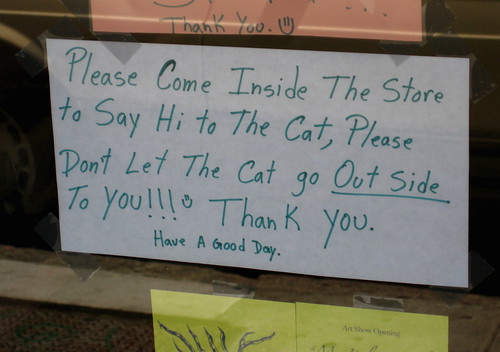 Thank You.
Please Come Inside The Store
to Say Hi to The Cat, Please
Dont Let The Cat go Out Side
To You!!! Thank You.
Have A Good Day.
Art Show Opening